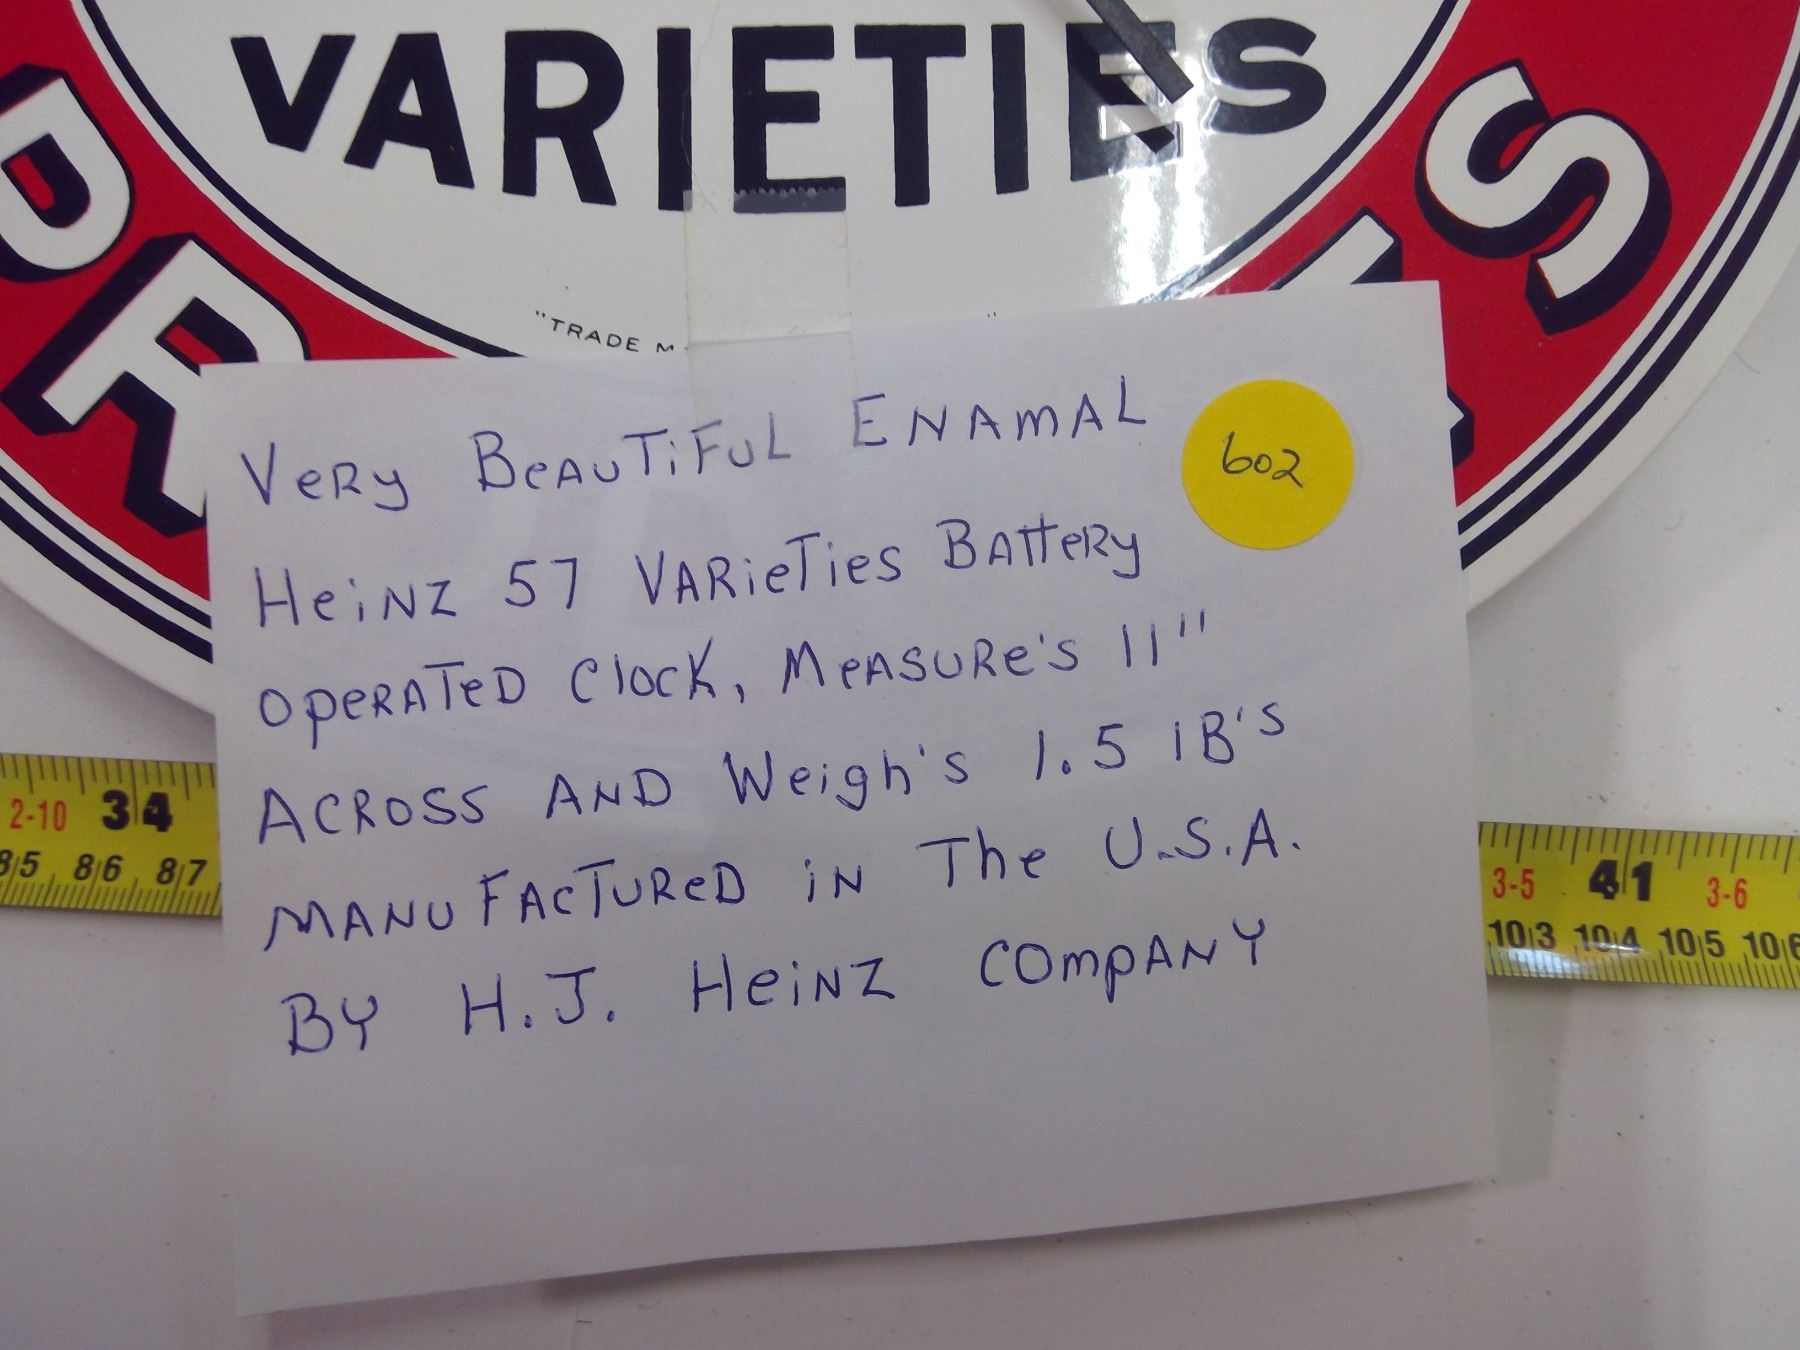 VARIETIES
PR
S
"TRADE M
"
Very Beautiful Enamal
602
Heinz 57 Varieties Battery
Operated Clock, Measure's 11"
Across and Weigh's 1.5 lB's
Manufactured in The U.S.A.
By H.J. Heinz Company
2-10 34
8/5 8/6 8/7
3-5 41 3-6
10/3 10/4 10/5 10/6